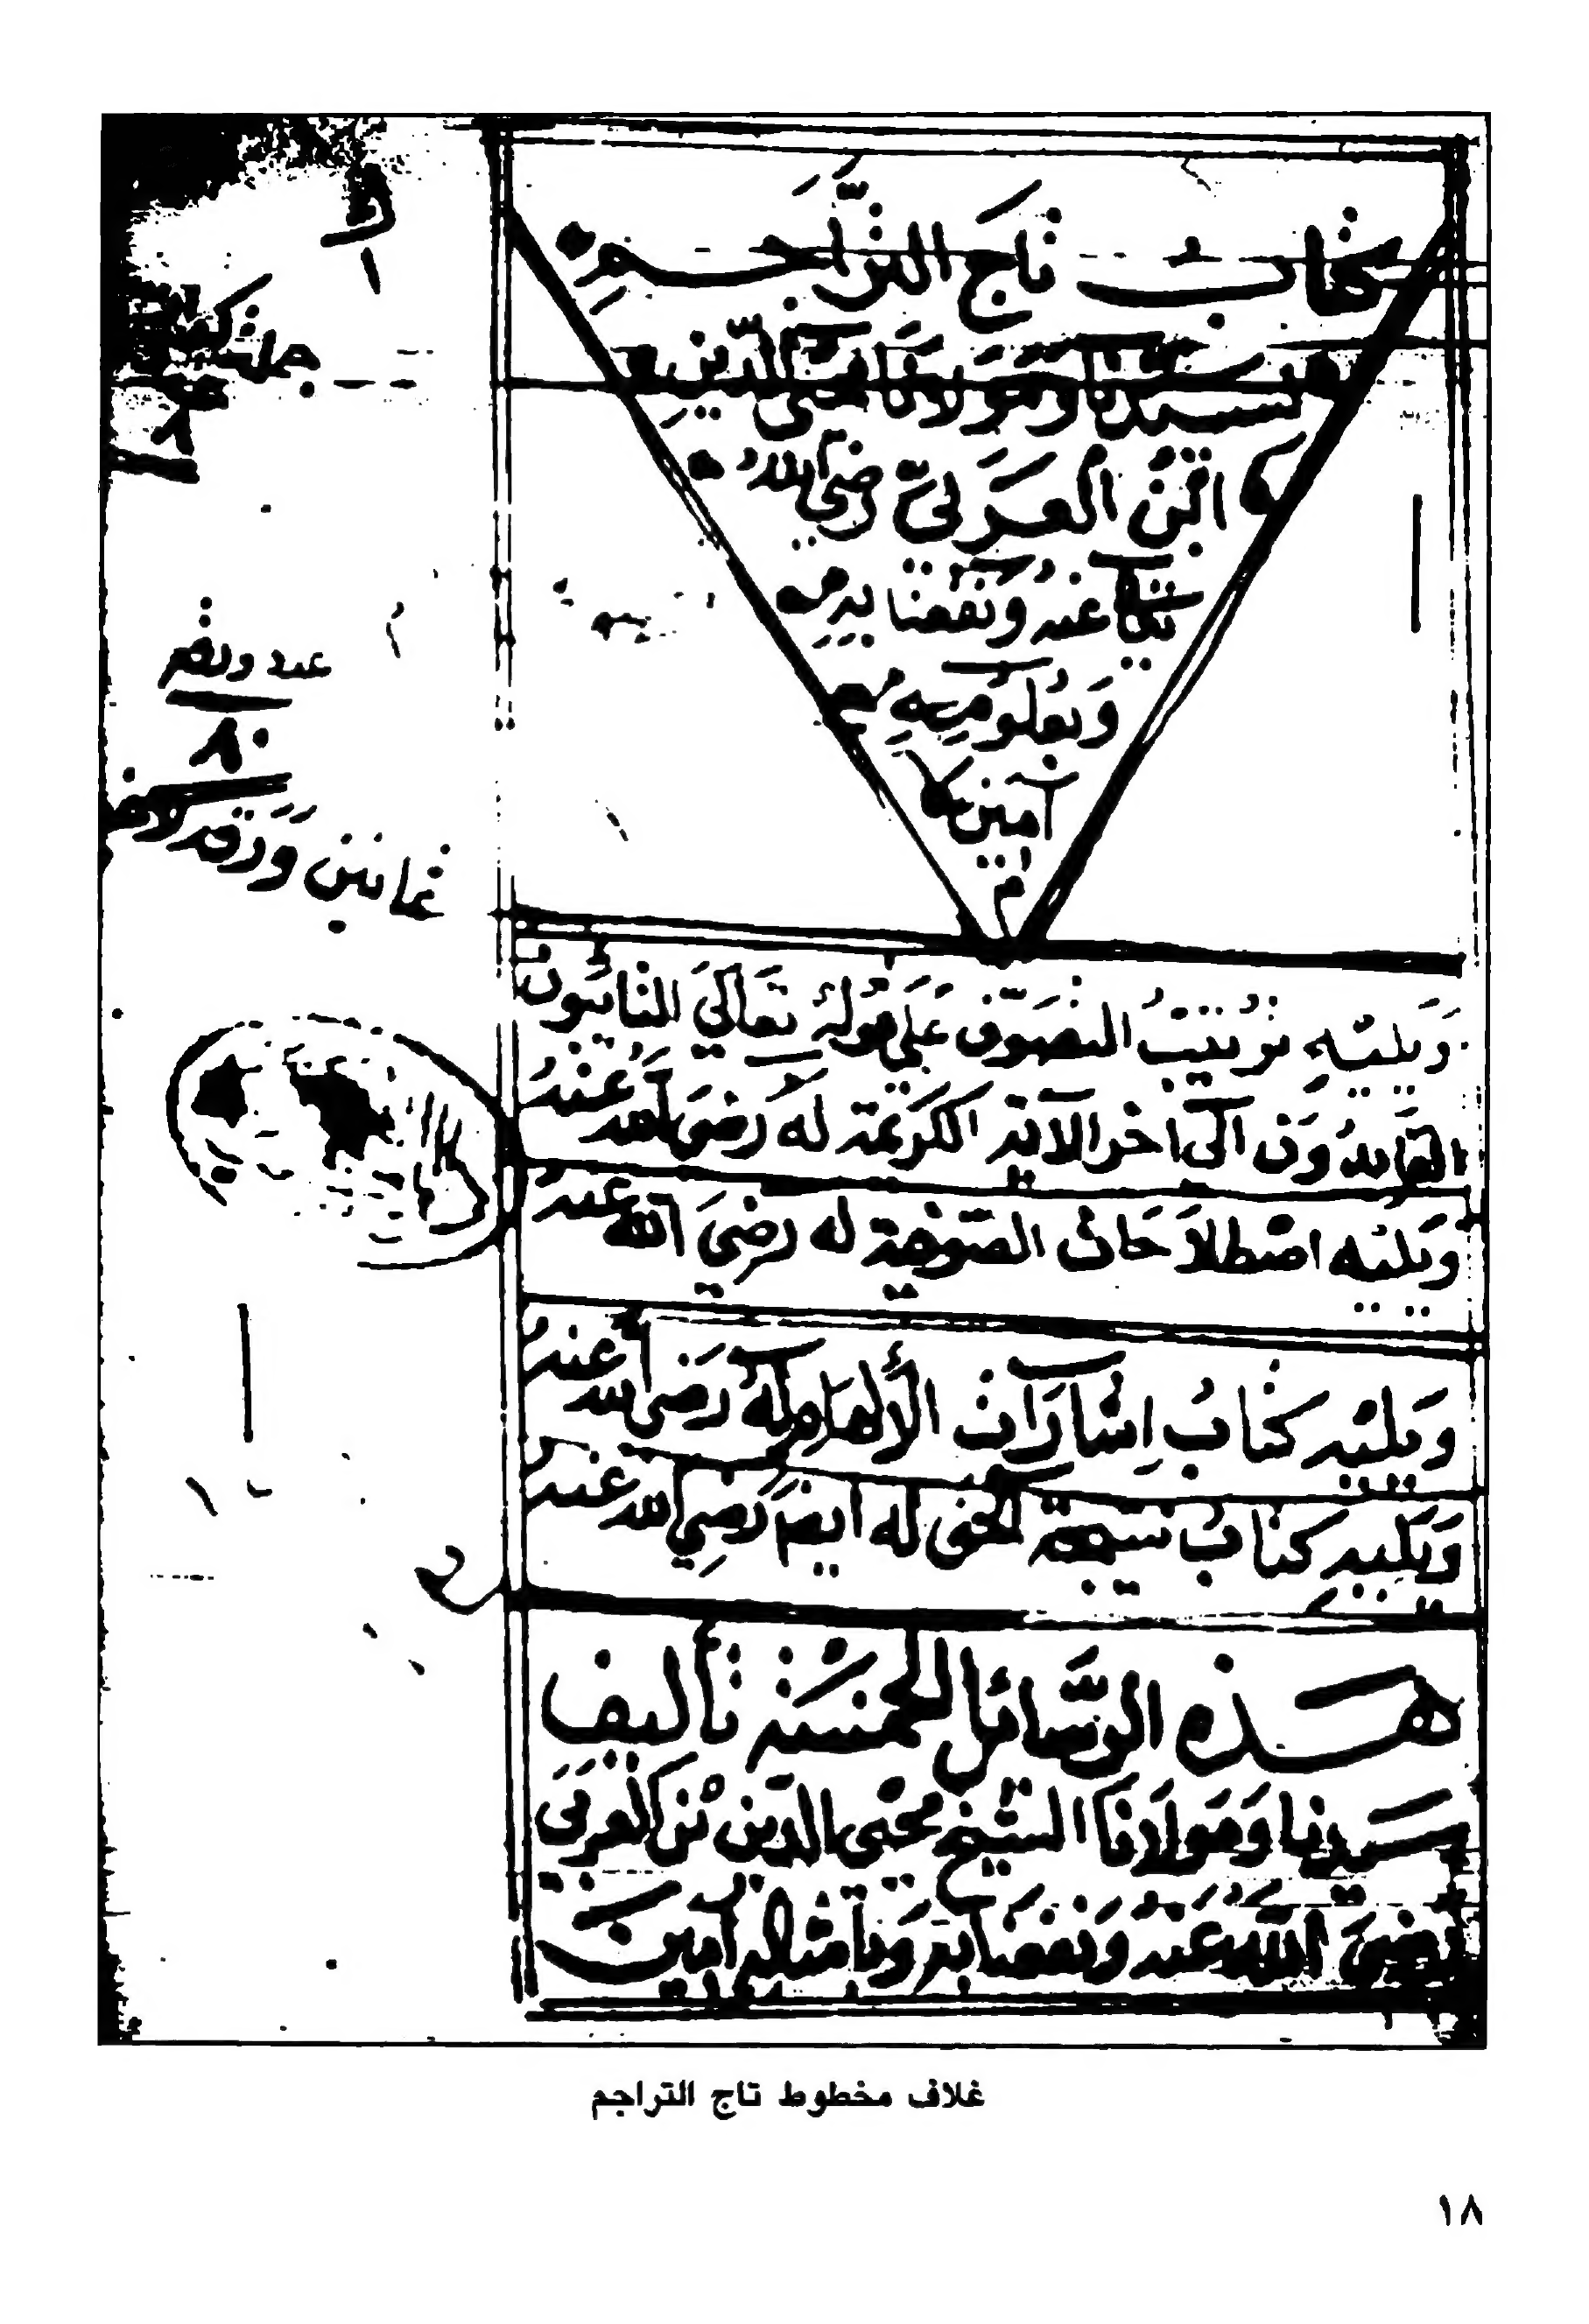 كتاب تاج التراجم
لسيدنا ومولانا محيى الدين
ابن العربي رضي الله
تعالى عنه ونفعنا به
وبعلومه
آمين
م
ويليه ترتيب التصوف على قوله تعالى التائبون
العابدون الى اخر الآية الكريمة له رضي الله عنه
ويليه اصطلاحات الصوفية له رضي الله عنه
ويليه كتاب إشارات الألهام له رضي الله عنه
ويليه كتاب نسبة الحق له ايضا رضي الله عنه
هذه الرسائل الخمسة تأليف
سيدنا ومولانا الشيخ محيى الدين بن العربي
رضي الله عنه ونفعنا به وبأمثاله آمين
جملة
٨
عدد ورقه
٨٠
ثمانين ورقه لاغير
غلاف مخطوط تاج التراجم
١٨